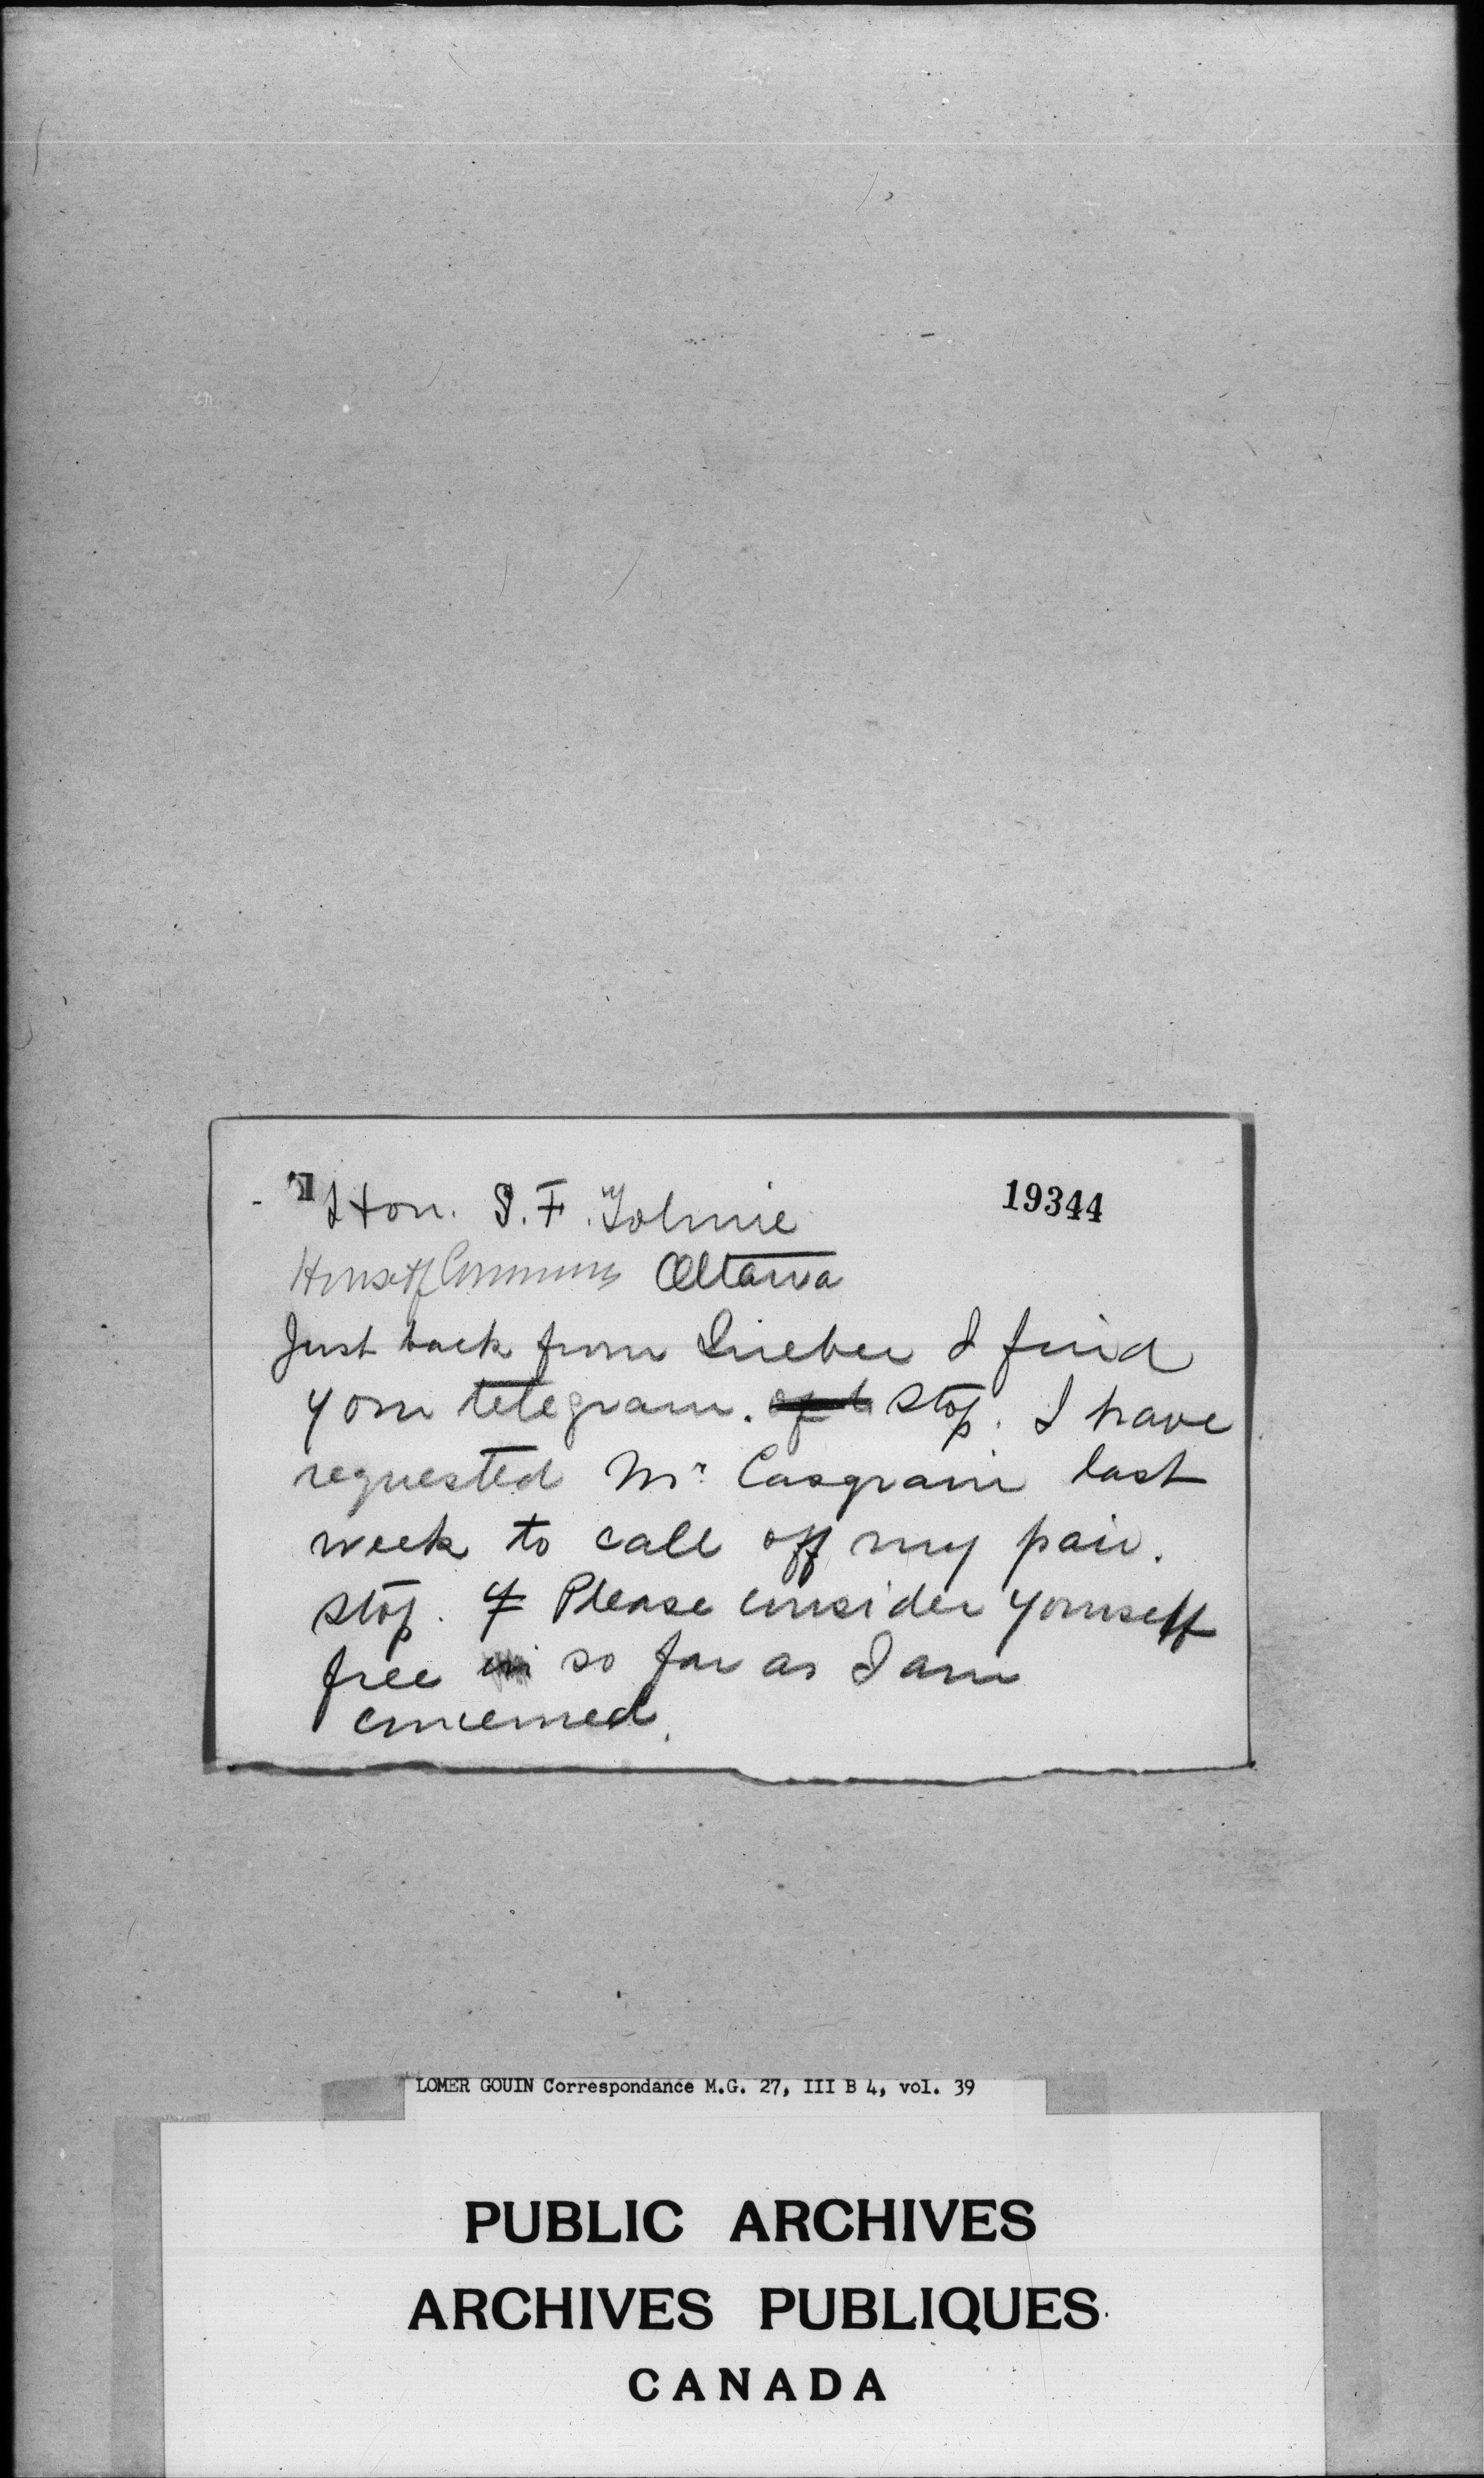 Hon. S. F. Tolmie
19344
House of Commons Ottawa
Just back from Quebec I find
your telegram. stop. I have
requested Mr Casgrain last
week to call off my pair.
stop. Please consider yourself
free in so far as I am
concerned.
LOMER GOUIN Correspondance M.G. 27, III B 4, vol. 39
PUBLIC ARCHIVES
ARCHIVES PUBLIQUES
CANADA